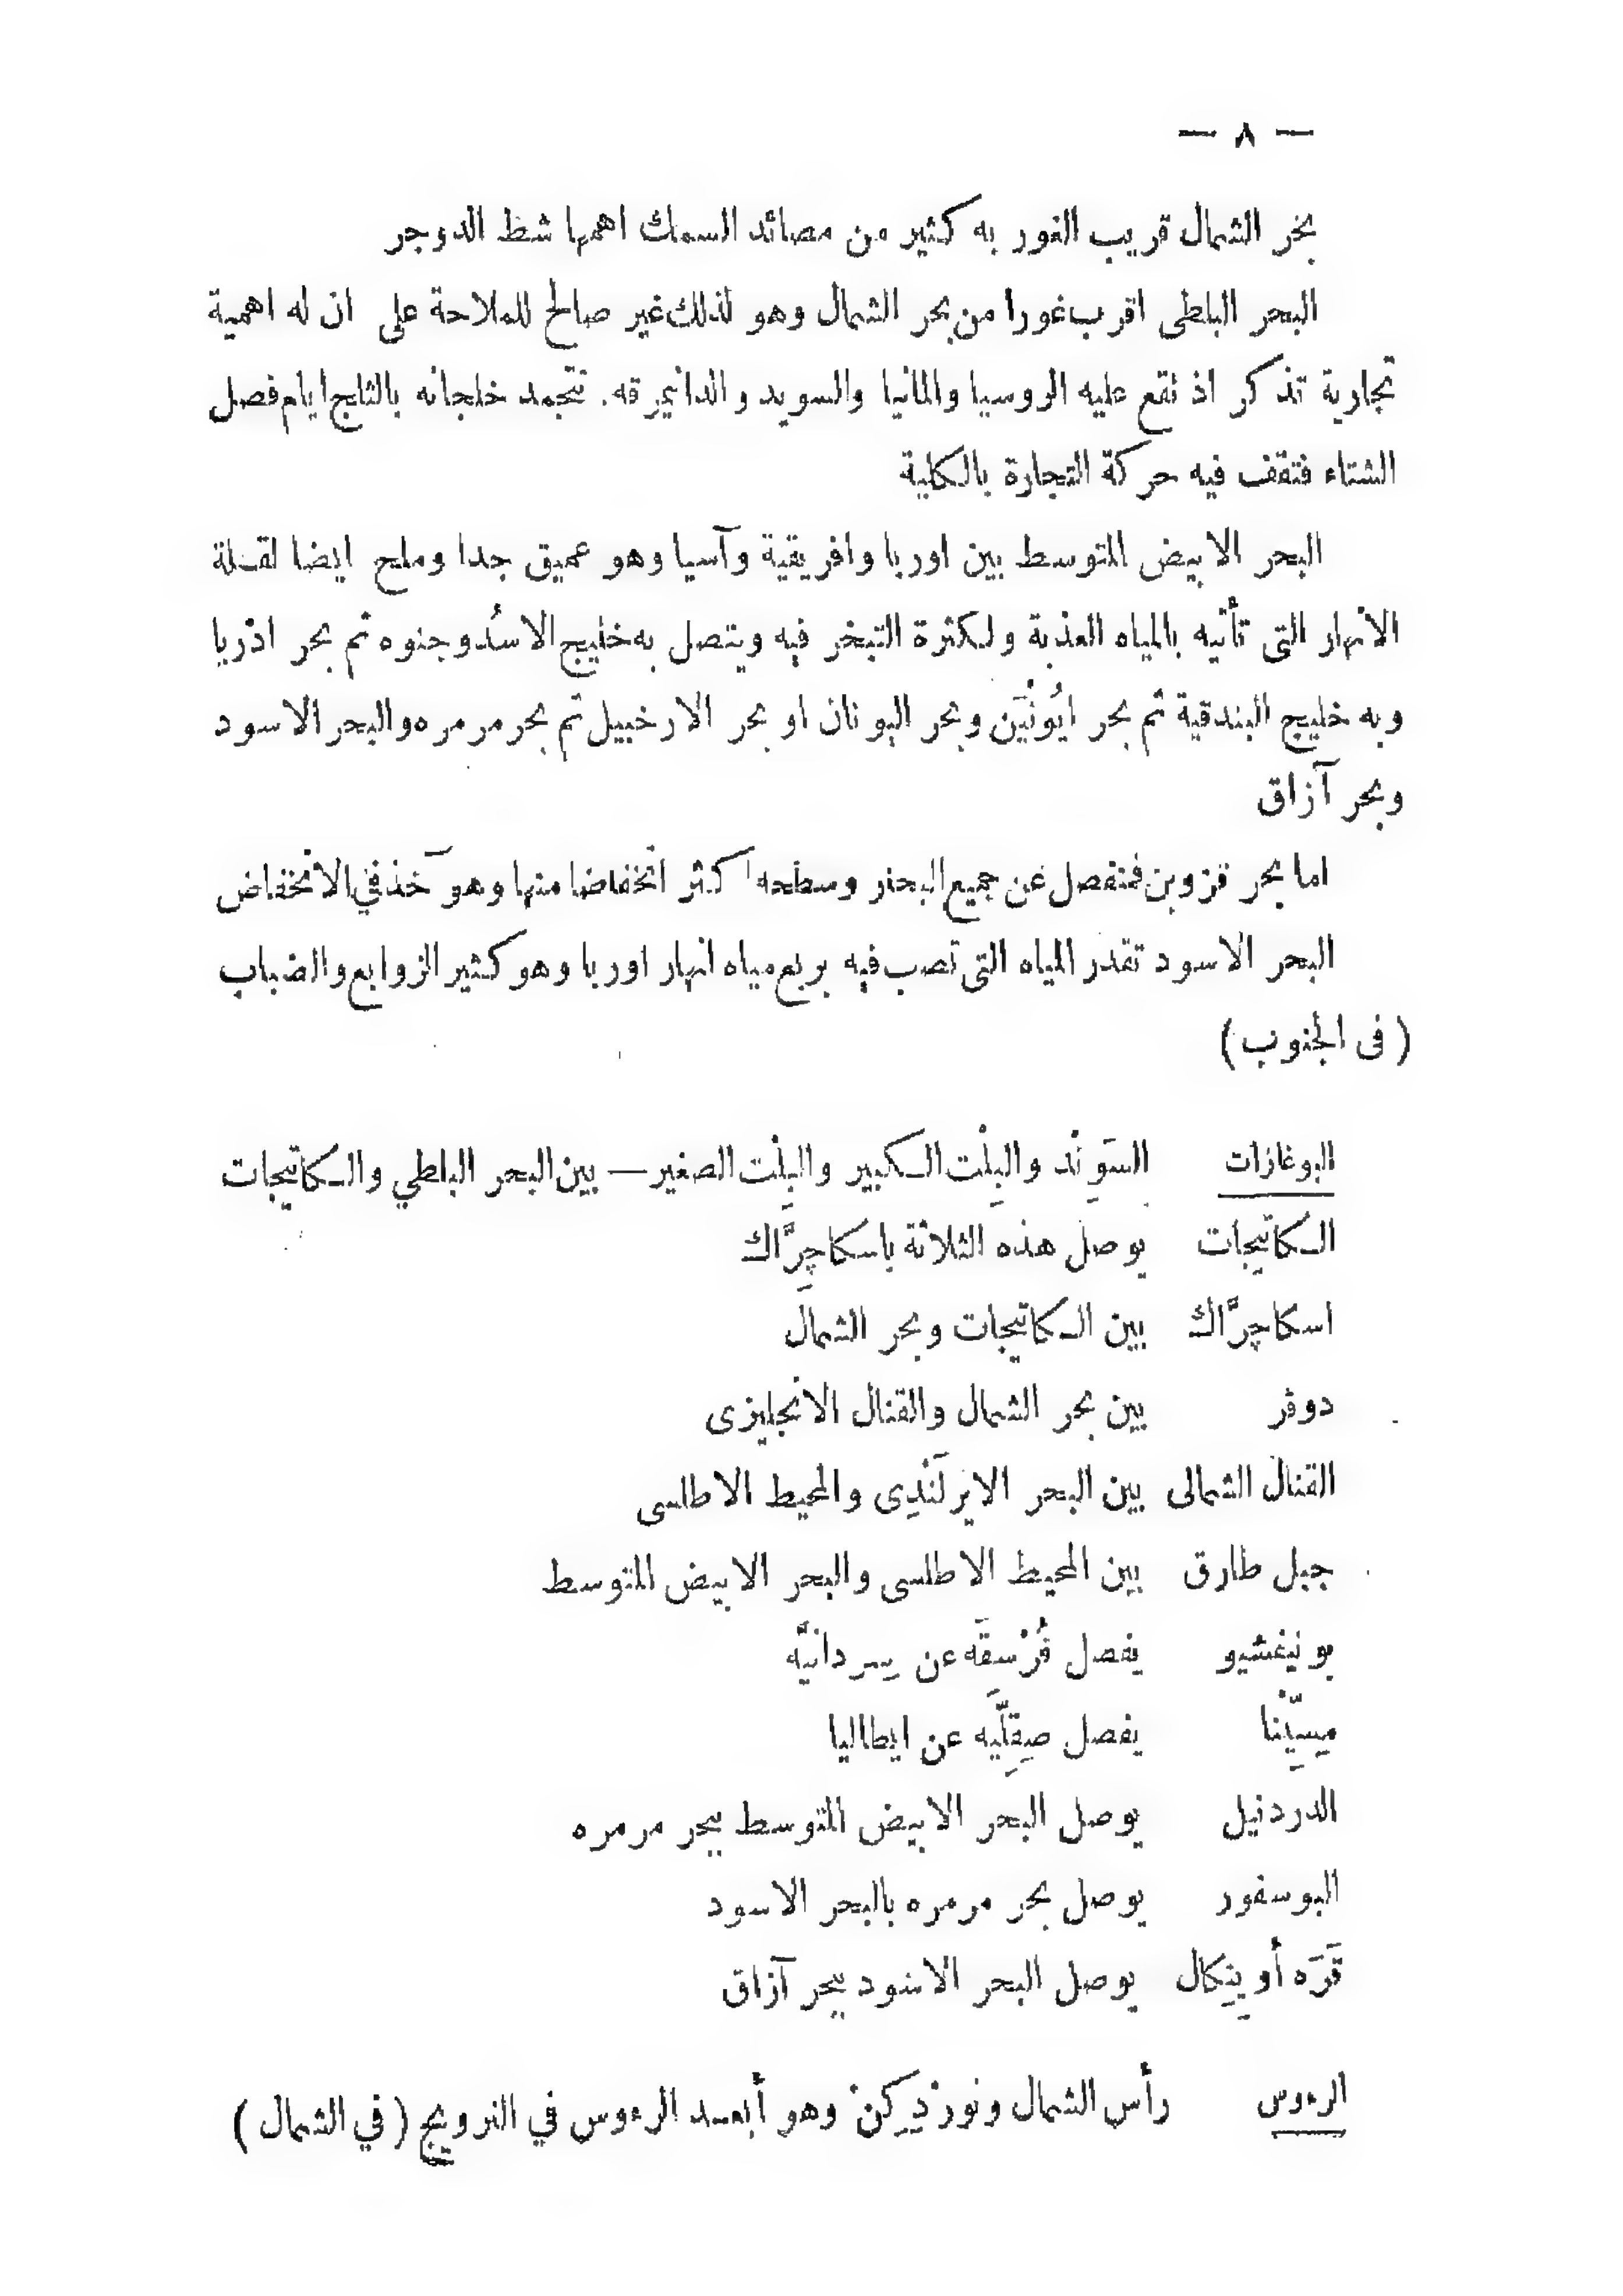 — ٨ —
بحر الشمال قريب الغور به كثير من مصائد السمك اهمها شط الدوجر
البحر البلطى اقرب غورا من بحر الشمال وهو لذلك غير صالح للملاحة على ان له اهمية
تجارية تذكر اذ تقع عليه الروسيا والمانيا والسويد والدانيمرقه. تتجمد خلجانه بالثلج ايام فصل
الشتاء فتقف فيه حركة التجارة بالكلية
البحر الابيض المتوسط بين اوربا وافريقية وآسيا وهو عميق جدا وملح ايضا لقلة
الانهار التى تأتيه بالمياه العذبة ولكثرة التبخر فيه ويتصل به خليج الاسُد وجنوه ثم بحر اذريا
وبه خليج البندقية ثم بحر ايُونْيَن وبحر اليونان او بحر الارخبيل ثم بحر مرمره والبحر الاسود
وبحر آزاق
اما بحر قزوين فمنفصل عن جميع البحار وسطحه اكثر انخفاضا منها وهو آخذ في الانخفاض
البحر الاسود تقدر المياه التى تصب فيه بربع مياه انهار اوربا وهو كثير الزوابع والضباب
(فى الجنوب)
البوغازات السَوِنْد والبِلْت الكبير والبِلْت الصغير — بين البحر البلطي والكاتيجات
الكاتيجات يوصل هذه الثلاثة باسكاچِرَّاك
اسكاچِرَّاك بين الكاتيجات وبحر الشمال
دوفر بين بحر الشمال والقنال الانجليزى
القنال الشمالى بين البحر الايرلَنْدِى والمحيط الاطلسى
جبل طارق بين المحيط الاطلسى والبحر الابيض المتوسط
بونيغشيو يفصل قُرْسِقَه عن سِردانيَّه
مِسِّيْنا يفصل صِقِلِّيَه عن ايطاليا
الدردنيل يوصل البحر الابيض المتوسط ببحر مرمره
البوسفور يوصل بحر مرمره بالبحر الاسود
قَرَه أو يِنِكال يوصل البحر الاسود ببحر آزاق
الرءوس رأس الشمال ونورْدِكِنْ وهو أبعد الرءوس في النرويج (في الشمال)